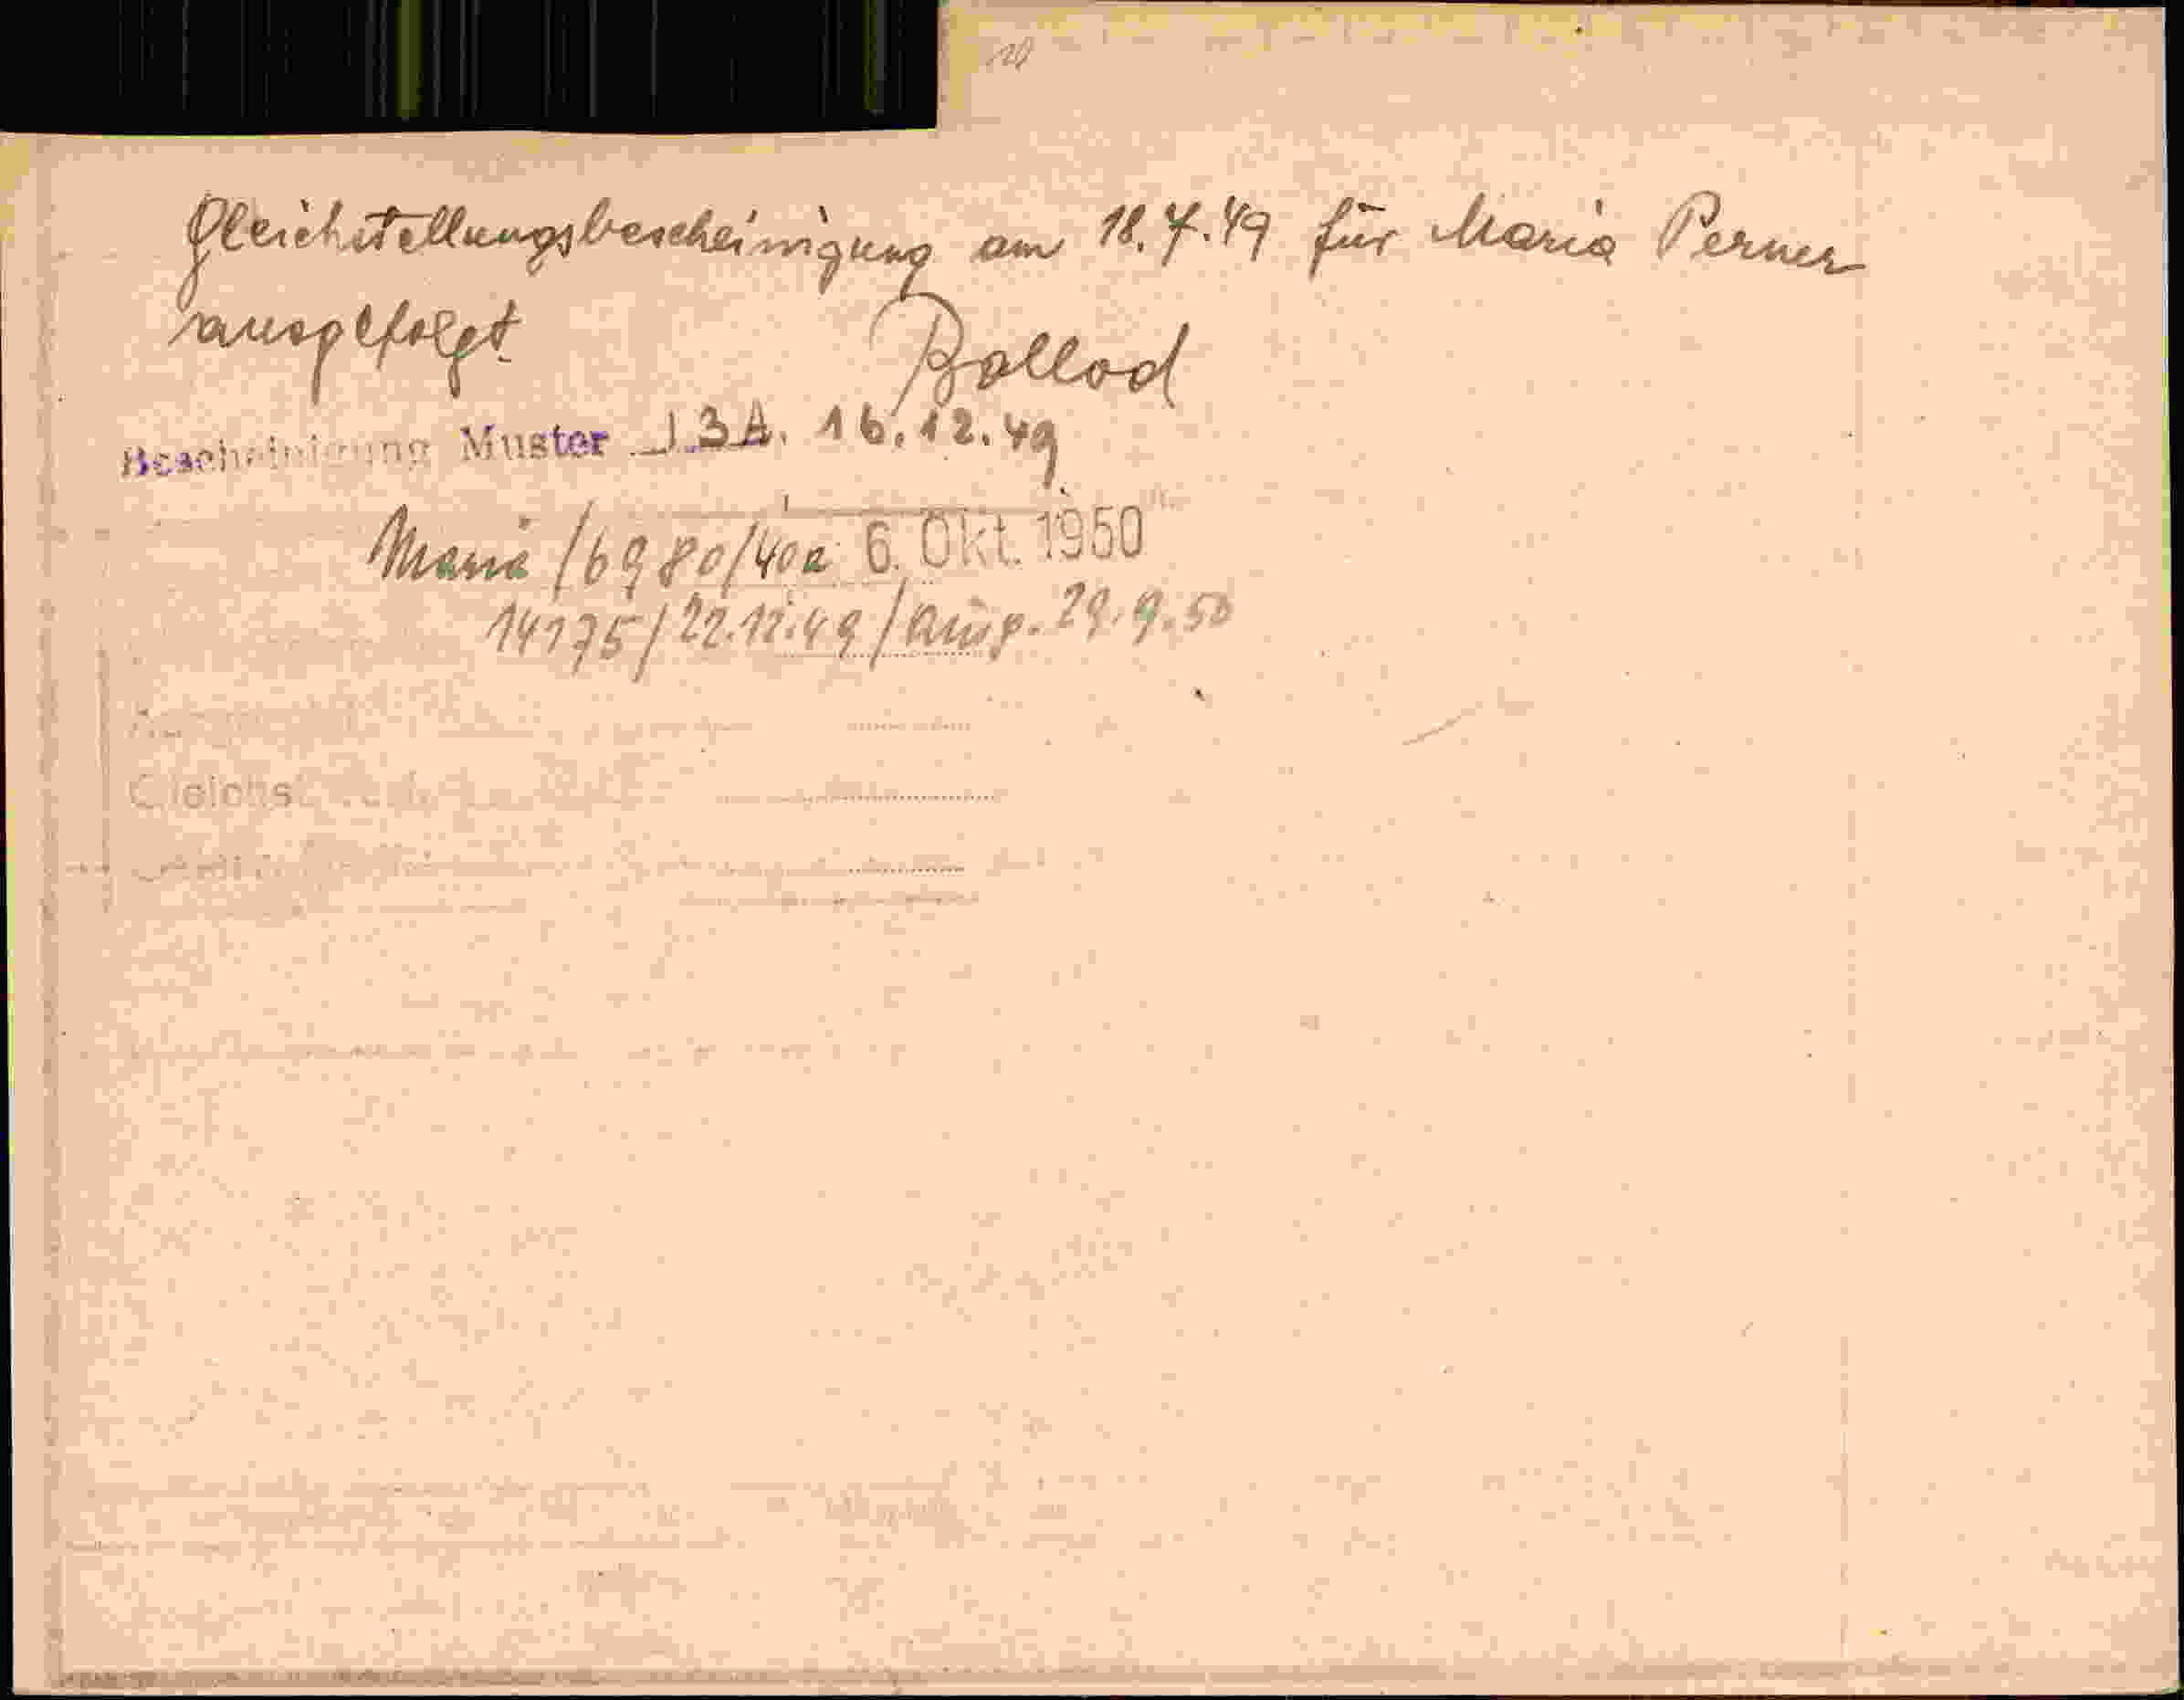 Gleichstellungsbescheinigung am 18.7.49 für Maria Perner
ausgefolgt
Bollod
Bescheinigung Muster J 3A. 16.12.49
Maria /6980/40a 6. Okt. 1950
14175/22.12.49/ausg. 29.9.50